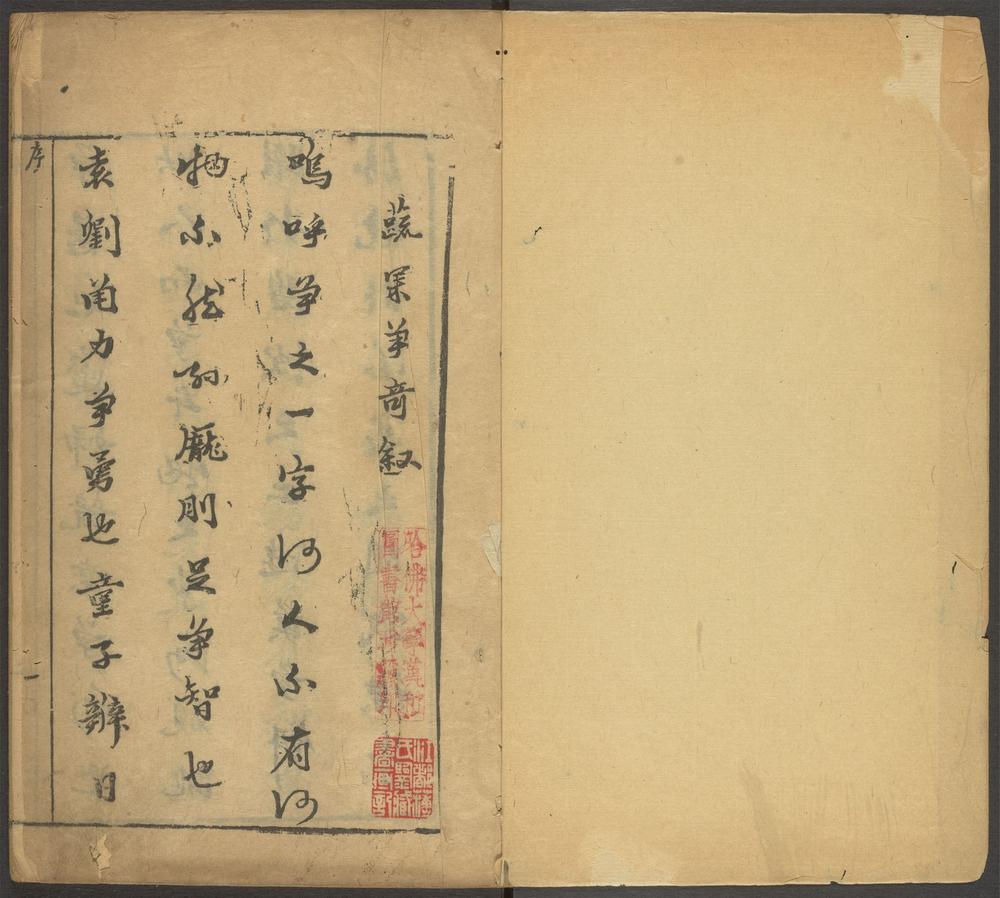 蔬果争奇叙
嗚呼争之一字何人不有何
物不然孫龐刖足争智也
袁劉角力争勇也童子辯日
序
一
哈佛大學漢和
圖書館珍藏印